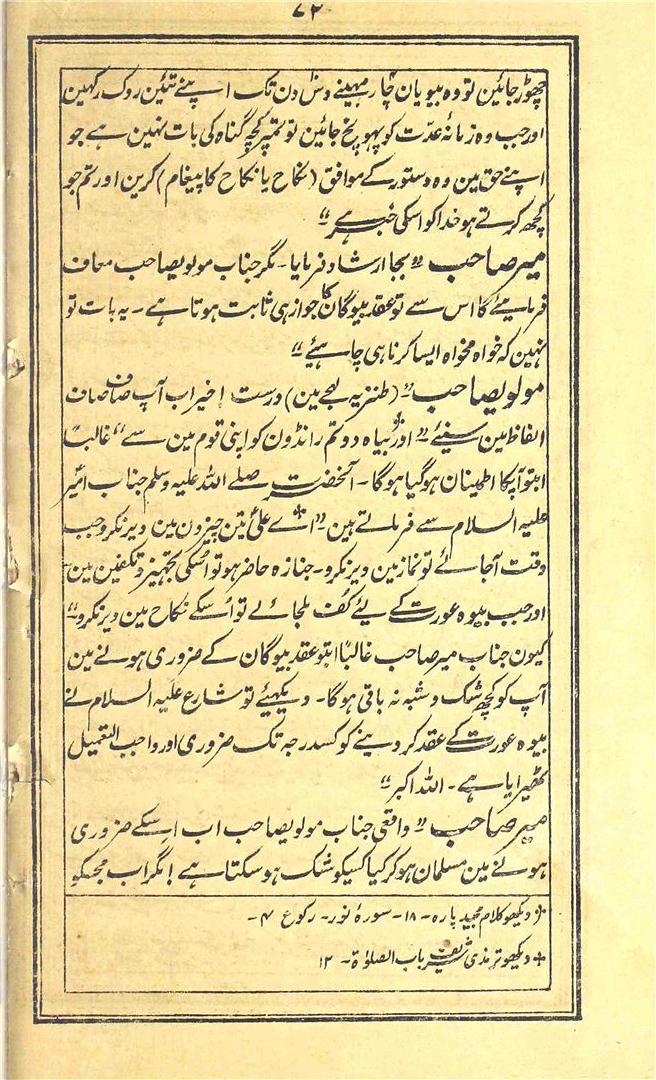 ۷۲
چھوڑ جائین تو وہ بیویان چار مہینے دس دن تک اپنے تئین روک رکھین
اور جب وہ زمانۂ عدّت کو پہونچ جائین تو تمپر کچھ گناہ کی بات نہین ہے جو
اپنے حق مین وہ دستور کے موافق (نکاح یا نکاح کا پیغام) کرین اور تم جو
کچھ کرتے ہو خدا کو اسکی خبر ہے“
میر صاحب ”بجا ارشاد فرمایا۔ مگر جناب مولویصاحب معاف
فرمایئے گا اس سے تو عقد بیوگان کا جواز ہی ثابت ہوتا ہے۔ یہ بات تو
نہین کہ خواہ مخواہ ایسا کرنا ہی چاہیئے“
مولویصاحب ”(طنزیہ لہجے مین) درست اخیر اب آپ صاف صاف
الفاظ مین سنیئے ”اور بیاہ دو تم رانڈون کو اپنی قوم مین سے“ غالباً
ابتو آپکا اطمینان ہو گیا ہوگا۔ آنحضرت صلے اللہ علیہ وسلم جناب امیر
علیہ السلام سے فرماتے ہین ”اے علی تین چیزون مین دیر نکرو جب
وقت آجائے تو نماز مین دیر نکرو۔ جنازہ حاضر ہو تو اُسکی تجہیز و تکفین مین
اور جب بیوہ عورت کے لیئے کُف ملجائے تو اُسکے نکاح مین دیر نکرو“
کیون جناب میر صاحب غالباً ابتو عقد بیوگان کے ضروری ہونے مین
آپ کو کچھ شک و شبہ نہ باقی ہوگا۔ دیکھیئے تو شارع علیہ السلام نے
بیوہ عورت کے عقد کر دینے کو کسدرجہ تک ضروری اور واجب التعمیل
ٹھیرایا ہے۔ اللہ اکبر“
میر صاحب ”واقعی جناب مولویصاحب اب اِسکے ضروری
ہونے مین مسلمان ہو کر کیا کسیکو شک ہو سکتا ہے! مگر اب مجھکو
* دیکھو کلام مجید پارہ۔ ۱۸۔ سورۂ نور۔ رکوع ۴۔
+ دیکھو ترمذی شریف باب الصلوٰۃ۔ ۱۲